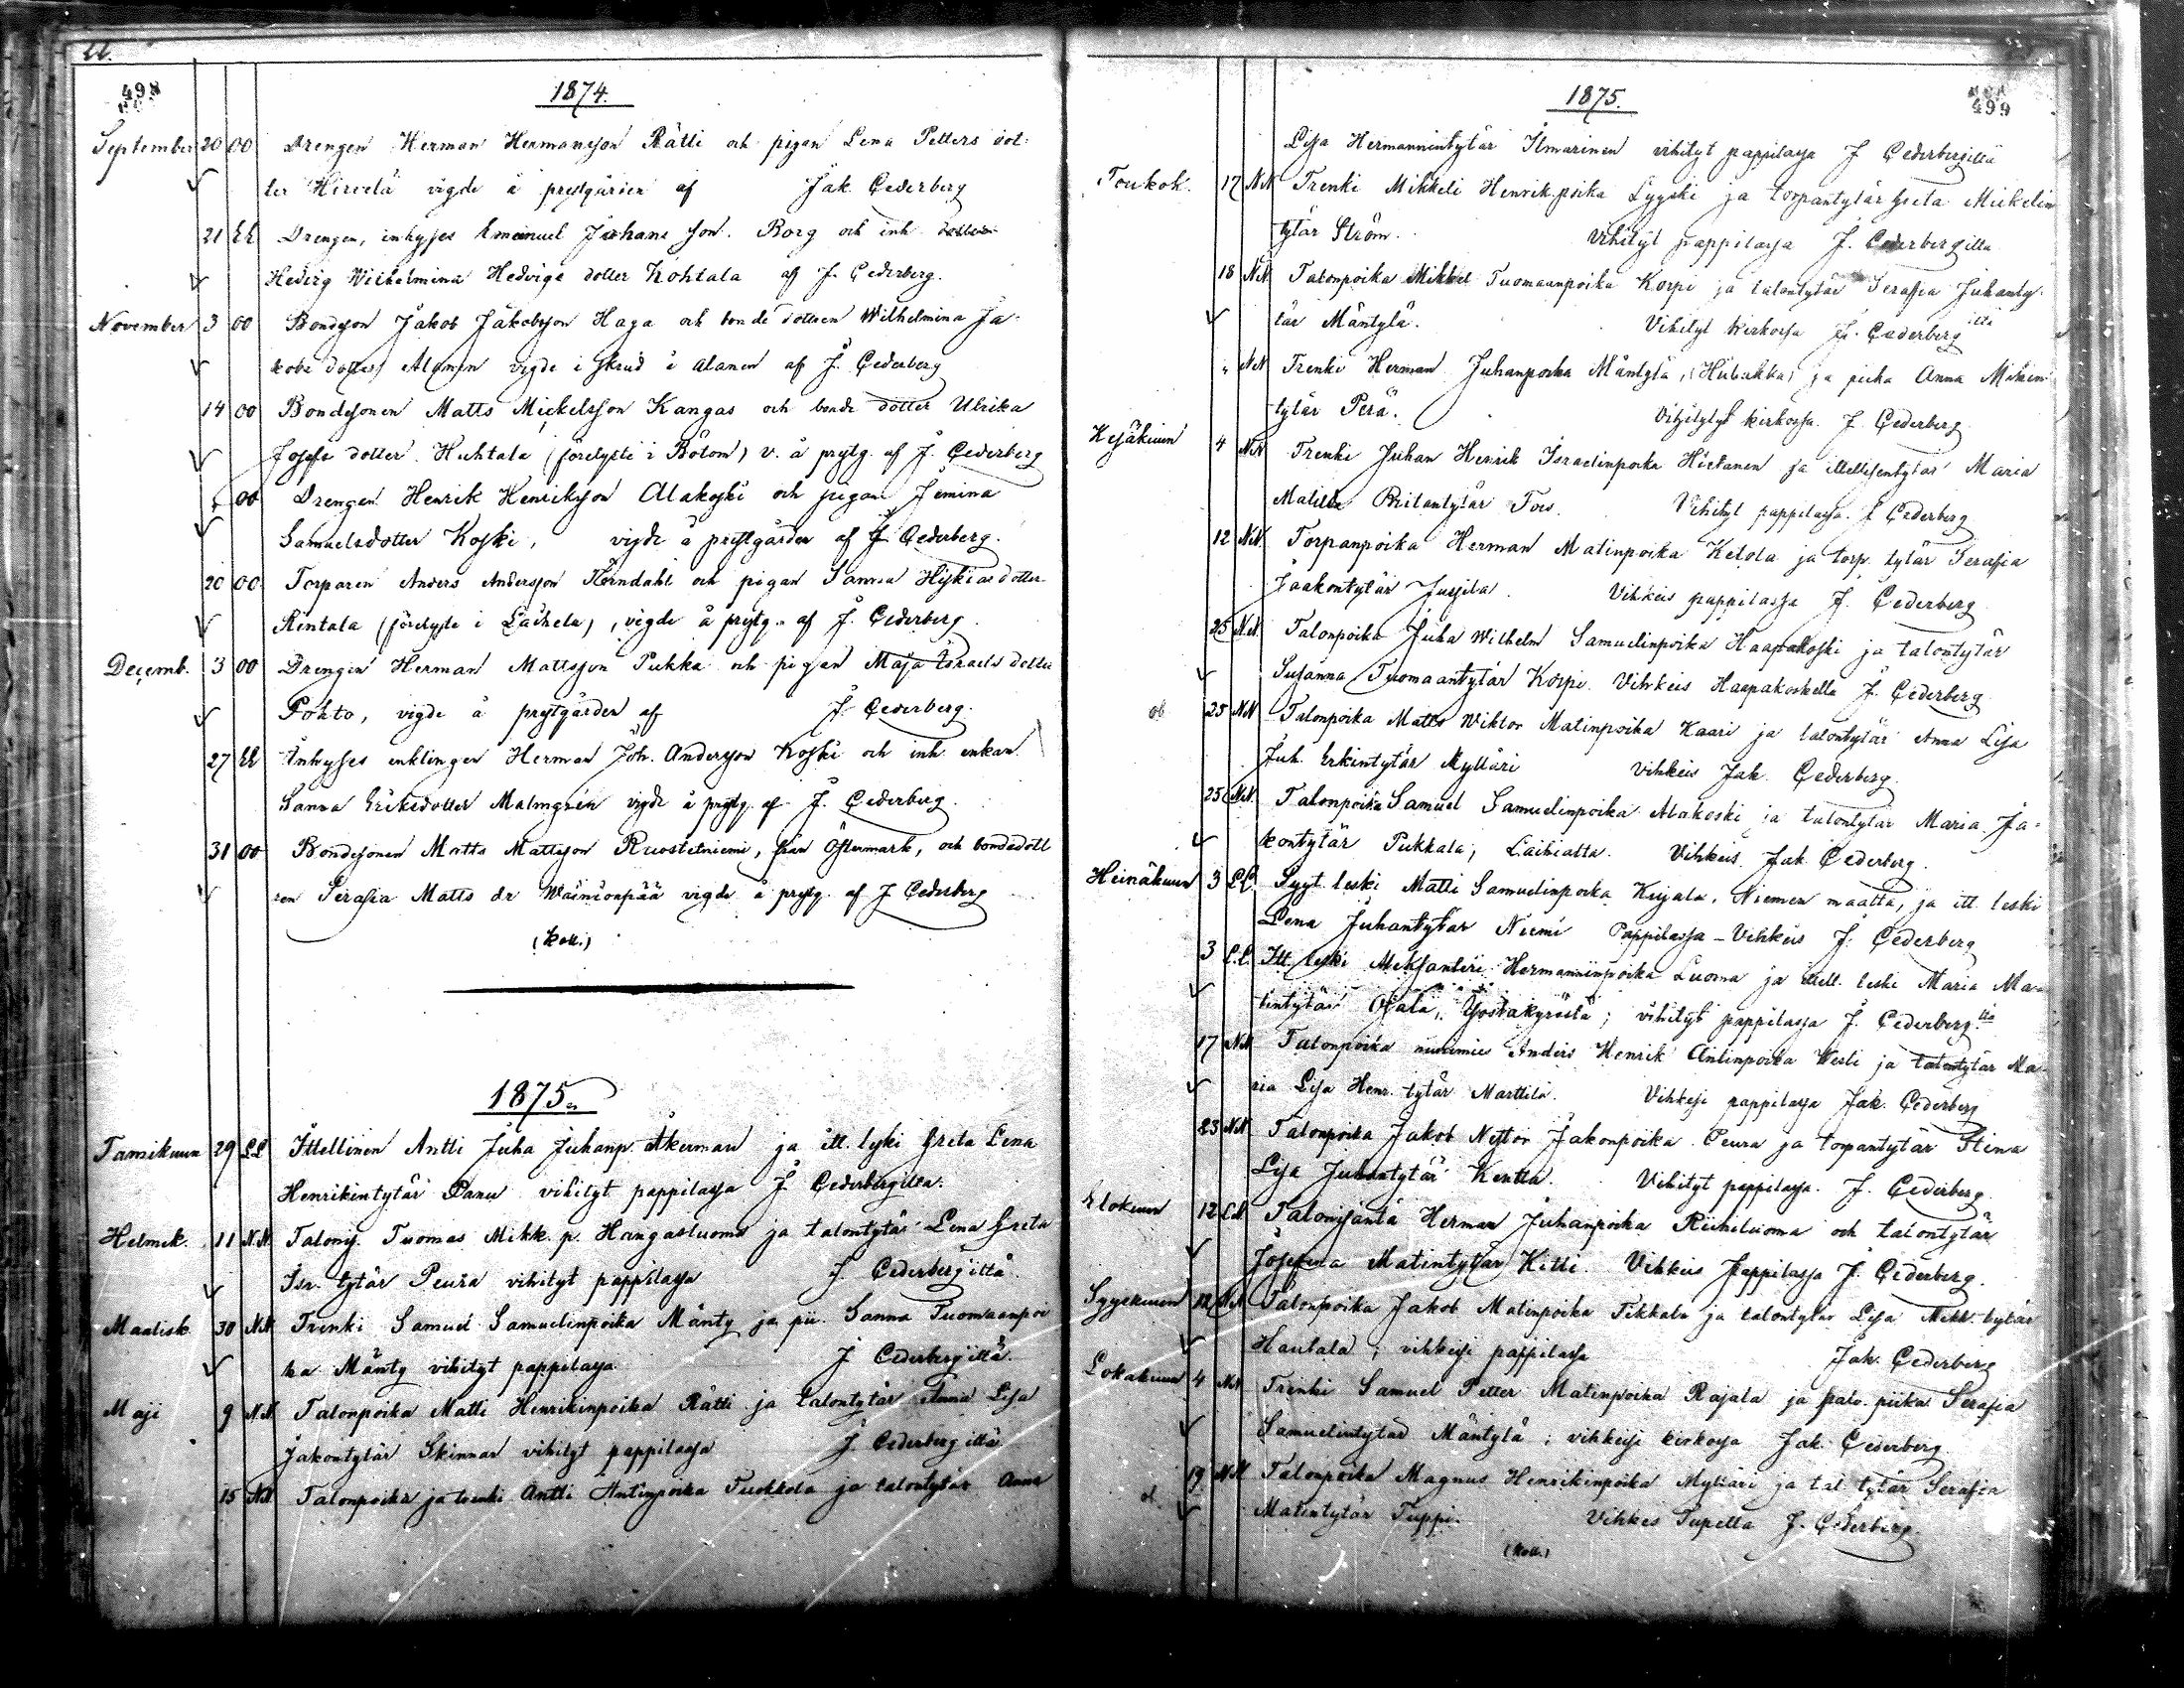 22.
498
1874.
September 20 OO Drengen Herman Hermansson Rätti och pigan Lena Petters dot-
ter Hirvelä vigde å prestgården af Jak. Cederberg
21 EE Drengen, inhyses Emanuel Johans son. Borg och inh. dottern
Hedvig Wilhelmina Hedvigs dotter Kohtala af J. Cederberg.
November 3 OO Bondeson Jakob Jakobsson Haga och bonde dottren Wilhelmina Ja-
kobs dotter Alanen vigde i skrud i Alanen af J. Cederberg
14 OO Bondesonen Matts Mickelsson Kangas och bonde dotter Ulrika
Josefs dotter Huhtala (förelyste i Bötom) v. å prstg. af J. Cederberg
" OO Drengen Henrik Henriksson Alakoski och pigan Jemina
Samuelsdotter Koski, vigde å prestgården af J. Cederberg.
20 OO Torparen Anders Andersson Törndahl och pigan Sanna Hiskiasdotter
Rintala (förelyste i Laihela), vigde å prstg. af J. Cederberg.
Decemb. 3 OO Drengen Herman Mattsson Pukka och pigan Maja Israels dotter
Pohto, vigde å prstgården af J. Cederberg.
27 EE Inhyses enklingen Herman Joh. Andersson Koski och inh. enkan
Sanna Eriksdotter Malmgrén vigde å prstg. af J. Cederberg.
31 OO Bondesonen Matts Mattsson Ruostetniemi, från Östermark, och bondedott
ren Serafia Matts dr Wäiniönpää vigde å prstg. af J. Cederberg
(Koll.)
1875.
Tamikuun 29 LL Ittellinen Antti Juha Juhanp. Åkerman ja itt. leski Greta Lena
Henrikintytär Panu vihityt pappilassa J. Cederbergiltä.
Helmik. 11 N.N. Talonp. Tuomas Mikk. p. Hangasluoma ja talontytär Lena Greta
Isr. tytär Peura vihityt pappilassa J. Cederbergiltä.
Maalisk. 30 N.N. Trenki Samuel Samuelinpoika Mänty ja pii. Sanna Tuomaanpoi
ka Mänty vihityt pappilassa J. Cederbergiltä.
Maji 9 N.N. Talonpoika Matti Henrikinpoika Rätti ja talontytär Anna Lisa
Jakontytär Skinnar vihityt pappilassa J. Cederbergiltä
15 N.N. Talonpoika ja trenki Antti Antinpoika Tuokkola ja talontytär Anna
1875.
499
Lisa Hermannintytär Ilmarinen vihityt pappilassa J. Cederbergiltä
Toukok. 17 N.N. Trenki Mikkeli Henrik.poika Lyyski ja torpantytär Greta Mickelin
tytär Ström. Vihityt pappilassa J. Cederbergilta
18 N.N. Talonpoika Mikkel Tuomaanpoika Korpi ja talontytär Serafia Juhanty-
tär Mäntylä. Vihityt kirkossa J. Cederbergiltä
" N.N. Trenki Herman Juhanpoika Mäntylä, ja piika Anna
tytär Perä. Vihityt kirkossa J. Cederberg
Kesäkuun 4 N.N. Trenki Juhan Henrik Israelinpoika Hietanen ja itellisentytär Maria
Matilda Tors. Vihityt pappilassa. J. Cederberg
12 N.N. Torpanpoika Herman Matinpoika Ketola ja torp. tytär Serafia
Jaakontytär Jussila. Vihkeis pappilassa J. Cederberg
25 N.N. Talonpoika Juha Wilhelm Samuelinpoika Haapakoski ja talontytär
Susanna Tuomaantytär Korpi. Vihkeis Haapakoskella J. Cederberg.
ob 25 N.N. Talonpoika Matts Wiktor Matinpoika Kaari ja talontytär Anna Lisa
Juh. Erkintytär Mylläri Vihkeis Jak. Cederberg.
25 N.N. Talonpoika Samuel Samuelinpoika Alakoski ja talontytär Maria Ja-
kontytär Pukkala, Laihialta. Vihkeis Jak. Cederberg.
Heinäkuun 3 L.L. Syyt. leski Matti Samuelinpoika Keijala, Niemen maalta, ja itt. leski
Lena Juhantytär Niemi Pappilassa - Vihkeis J. Cederberg
3 L.L. Itt. leski Aleksanteri Hermanninpoika Luoma ja itell. leski Maria Ma-
tintytär Ojala, Ysostakyröstä; vihityt pappilassa J. Cederberg.lta
17 N.N. Talonpoika nuorimies Anders Henrik Antinpoika Westi ja talontytär Ma-
ria Lisa Henr. tytär Marttila. Vihkeisi pappilassa Jak. Cederberg
23 N.N. Talonpoika Jakob Nestor Jakonpoika Peura ja torpantytär Stina
Lisa Juhantytär Kentta. Vihityt pappilassa. J. Cederberg.
Elokuun 12 L.N. Talonisäntä Herman Juhanpoika Riiheluoma och talontytär
Josefina Matintytär Kitti. Vihkeis Pappilassa J. Cederberg.
Syyskuun 12 N.N. Talonpoika Jakob Matinpoika Tikkala ja talontytär Lisa Mikk. tytär
Hautala; vihkeisi pappilassa Jak. Cederberg
Lokakuun 4 N.N. Trenki Samuel Petter Matinpoika Rajala ja palv. piika Serafia
Samuelintytär Mäntylä; vihkeisi kirkossa Jak. Cederberg.
ob. 19 N.N. Talonpoika Magnus Henrikinpoika Mylläri ja tal. tytär Serafia
Matintytär Tuppi. Vihkes Tupella J. Cederberg.
(Koll.)